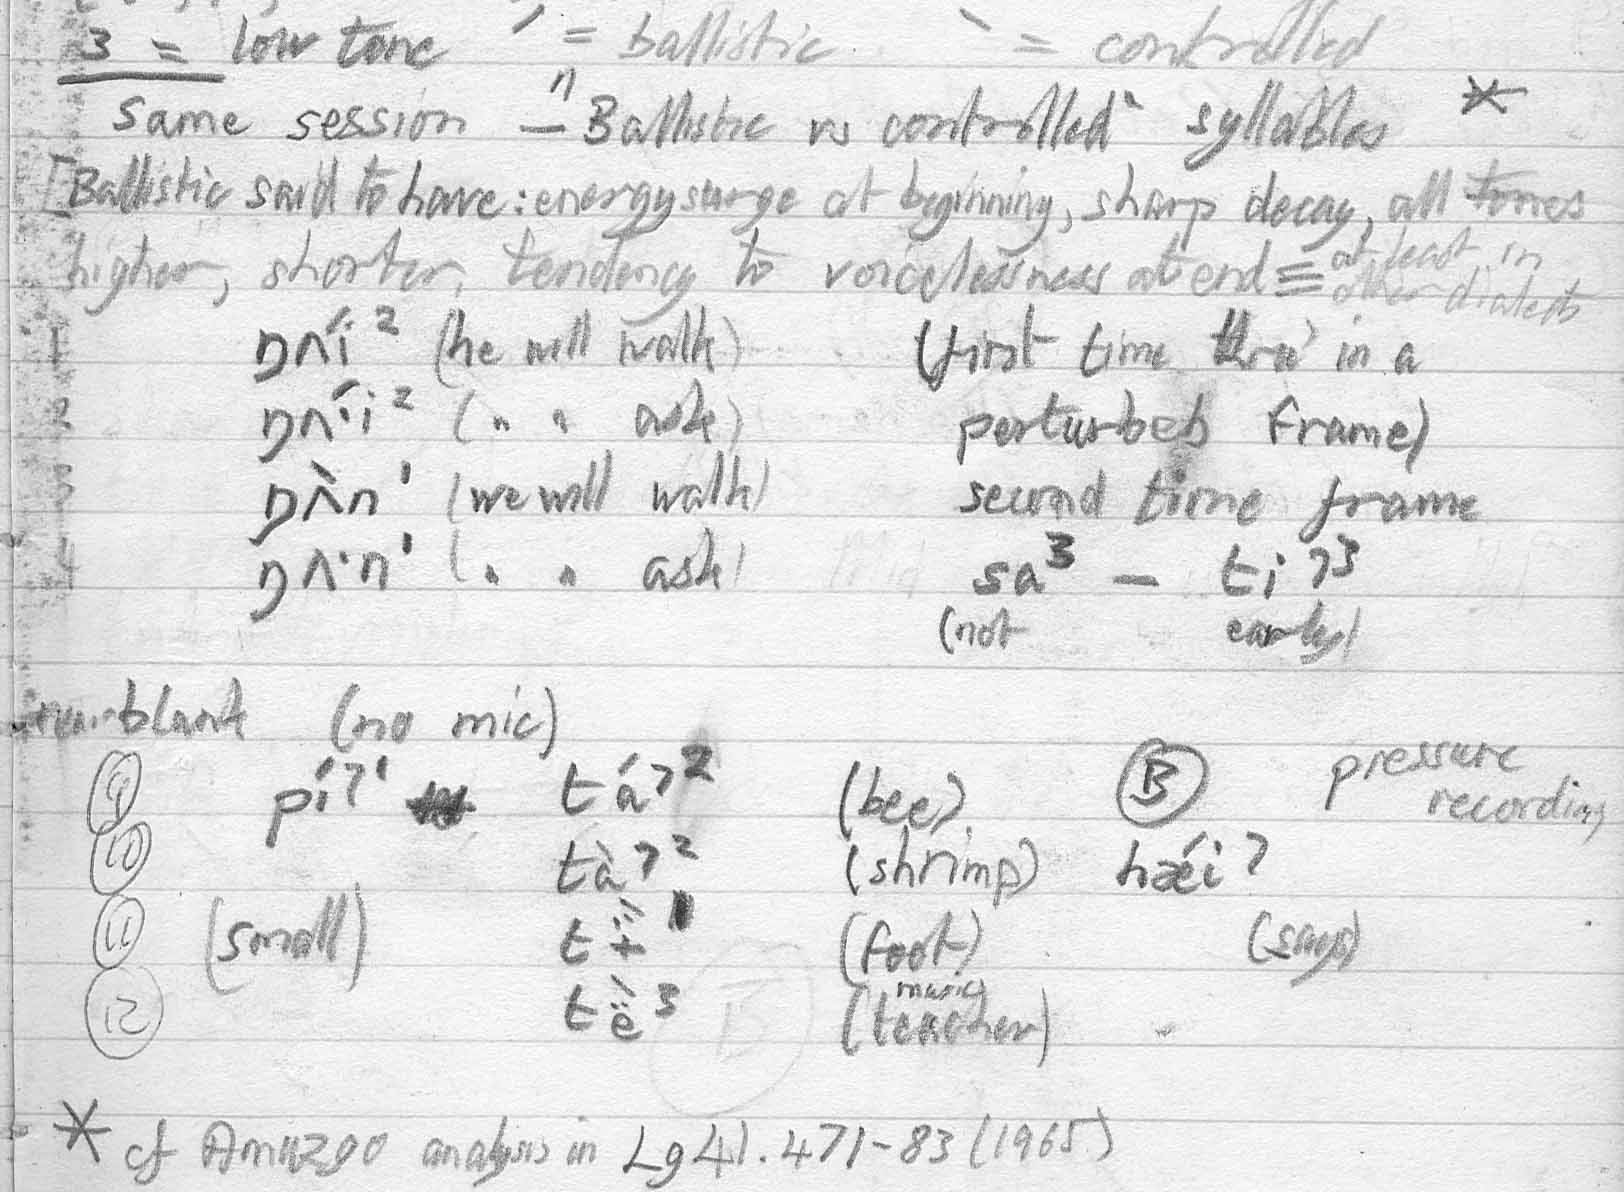 3 = low tone ˊ = ballistic ˋ = controlled
Same session — "Ballistic vs controlled" syllables *
[Ballistic said to have: energy surge at beginning, sharp decay, all tones
higher, shorter, tendency to voicelessness at end — at least in
other dialects
1 ŋʌ́i² (he will walk) (first time thru' in a
2 ŋʌ́·i² (" " ask) perturbeb frame)
3 ŋʌ̀n¹ (we will walk) second time frame
4 ŋʌ·n¹ (" " ask) sa³ — tiʔ³
(not early)
blank (no mic)
⑨ píʔ¹ táʔ² (bee) Ⓑ pressure
recording
⑩ tàʔ² (shrimp) hǽiʔ
⑪ (small) tɨ̈́¹ (foot) (says)
⑫ të̀³ (music teacher)
* cf Amuzgo analysis in Lg 41. 471-83 (1965)